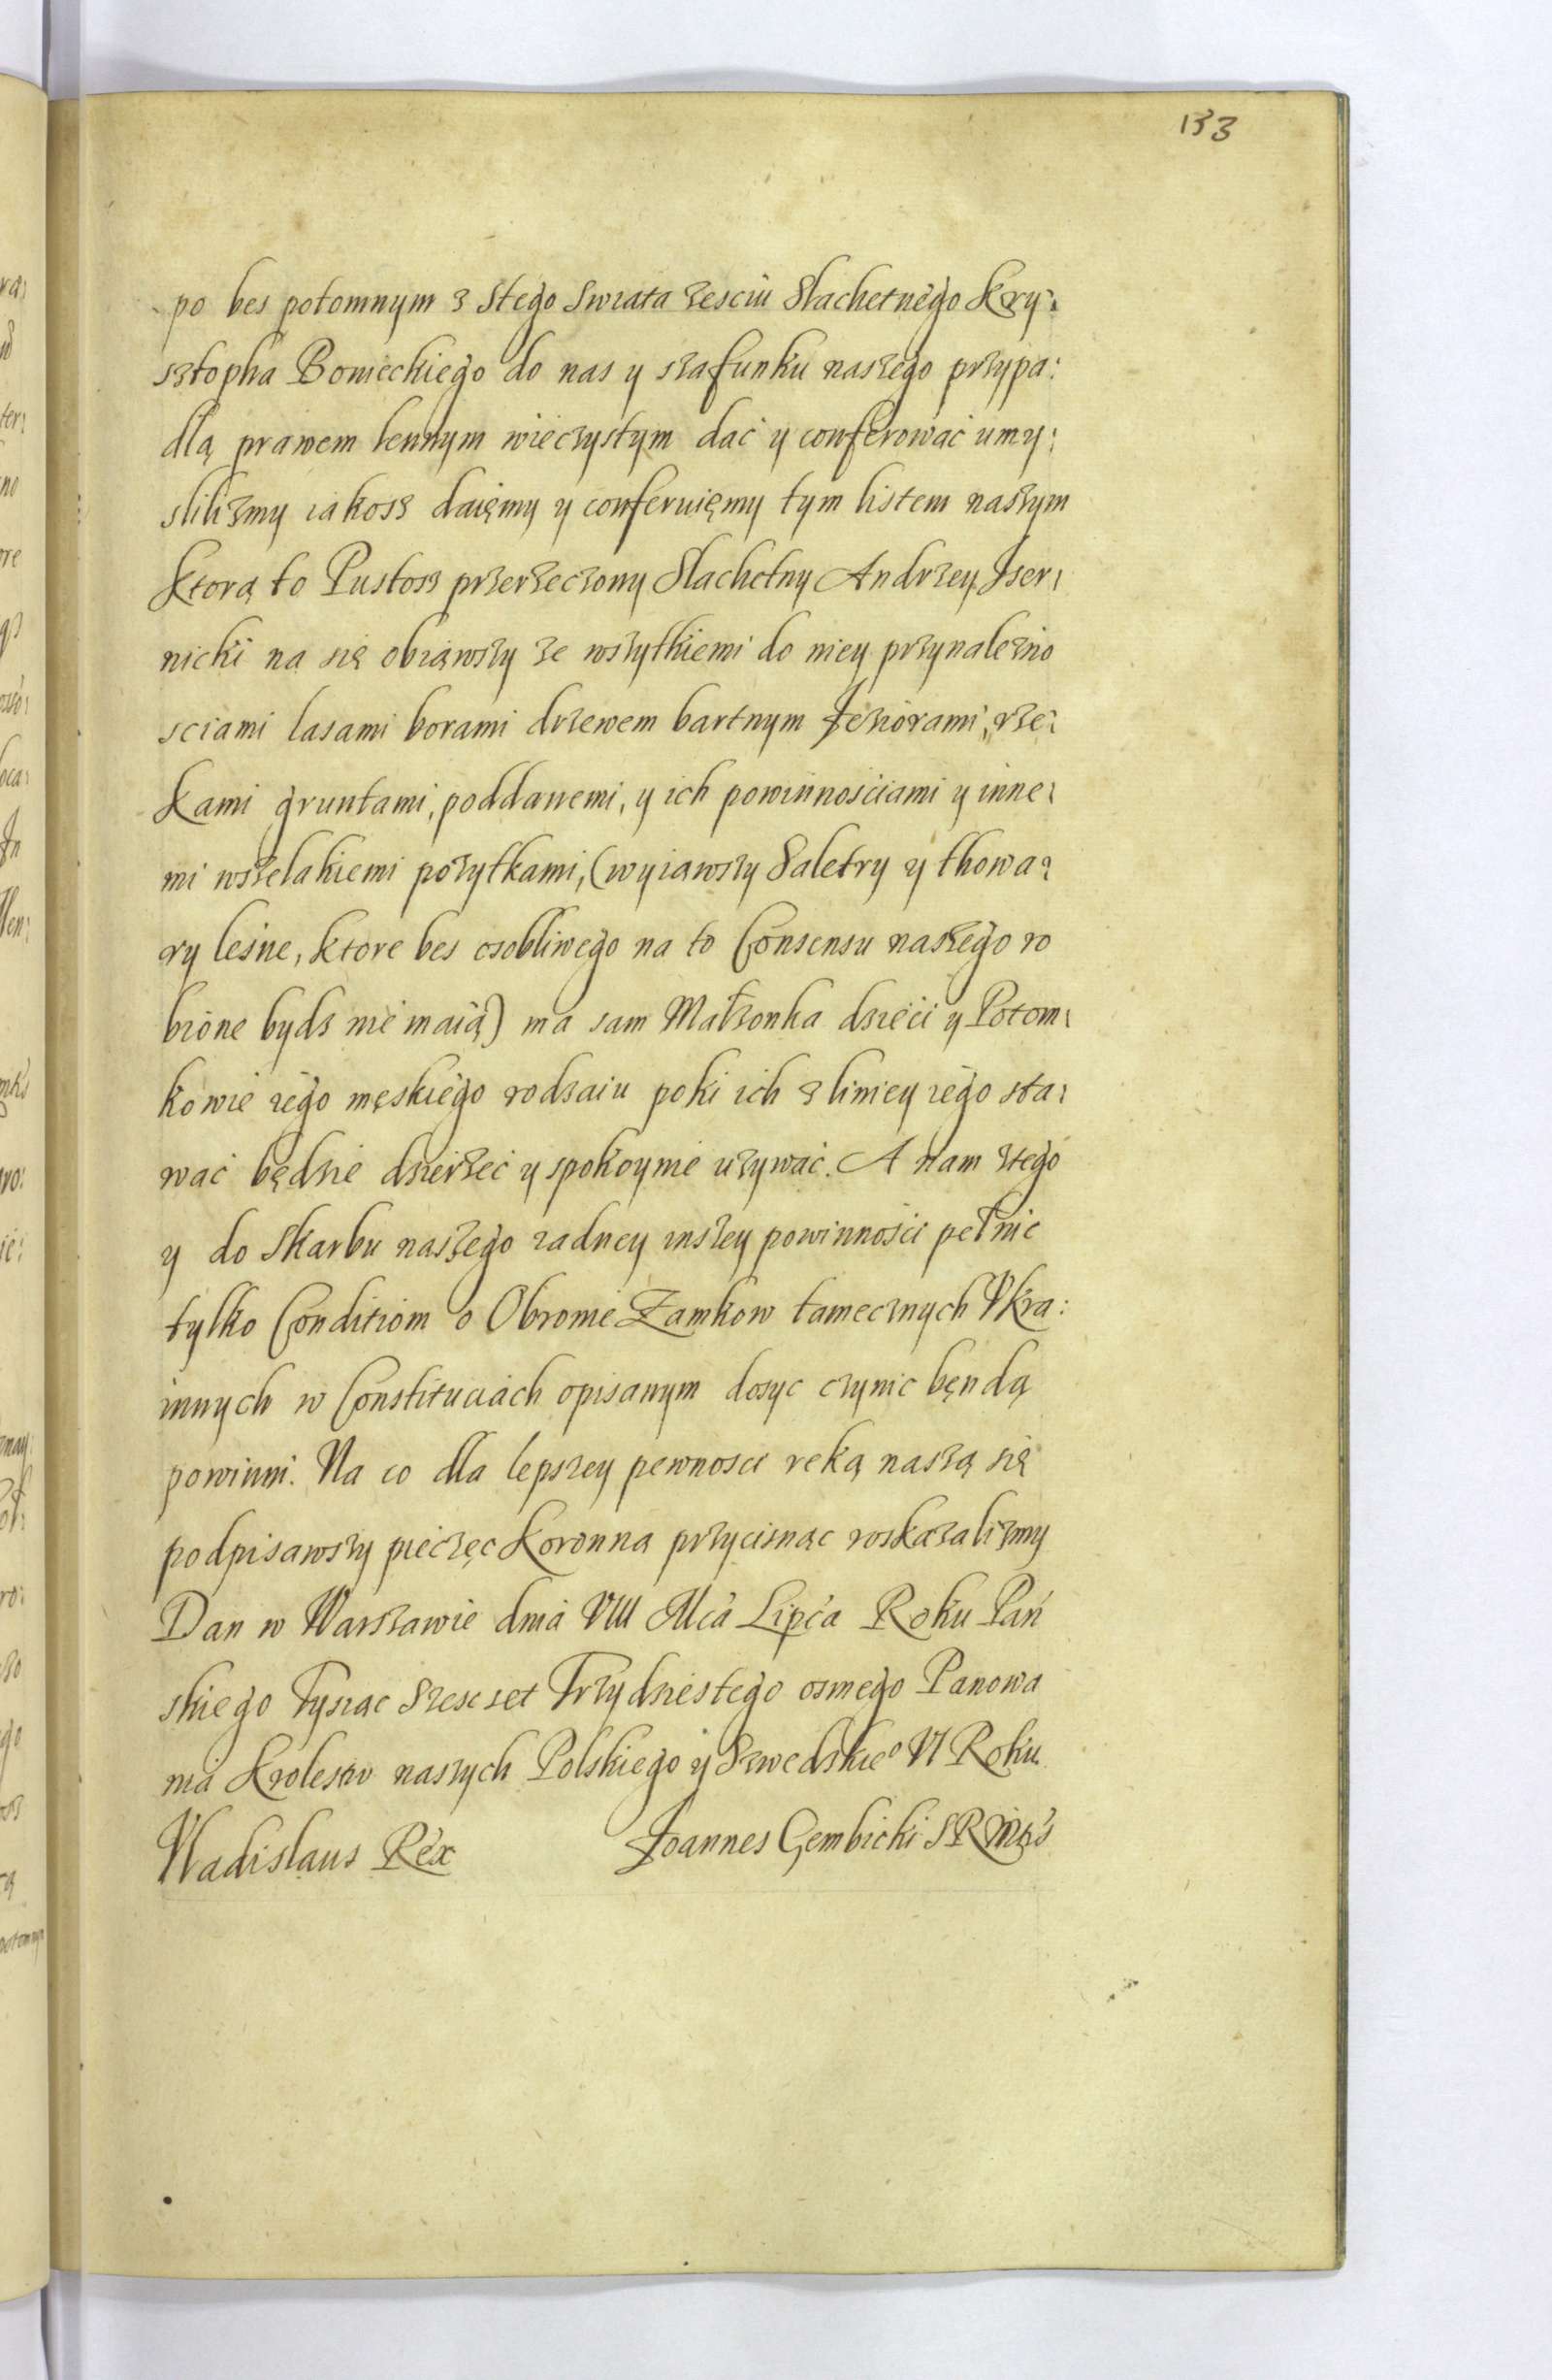 133
po bes potomnym z Stego Swiata zesciu Slachetnego Kry:
sztopha Bonieckiego do nas y szafunku naszego przypa:
dlą prawem lennym wieczystym dać y conferować umy:
slilizmy iakosz daięmy y conferuięmy tym listem naszym
Ktorą to Pustosz przerzeczony Slachetny Andrzey Iser:
nicki na się obiąwszy ze wszytkiemi do niey przynalezno
sciami lasami borami drzewem bartnym Jeziorami, rze:
Kami gruntami, poddanemi, y ich powinnościami y inne:
mi wszelakiemi pożytkami, (wyiawszy Saletry y thowa:
ry leśne, ktore bes osobliwego na to Consensu naszego ro
bione bydz nie maią) ma sam Małzonka dzieci y Potom:
kowie iego męskiego rodzaiu poki ich z liniey iego sta:
wać będzie dzierżeć y spokoynie używać. A nam ztego
y do Skarbu naszego zadney inszey powinności pełnic
tylko Conditiom o Obronie Zamkow tamecznych Vkra:
innych w Constituciach opisanym dosyc czynic bęndą
powinni. Na co dla lepszey pewnosci reką naszą się
podpisawszy pieczęc Koronna przycisnąc roskazalizmy
Dan w Warszawie dnia VIII Mca Lipca Roku Pań
skiego Tysiąc Szescset Trzydziestego osmego Panowa
nia Krolestw naszych Polskiego y Szwedskieo VI Roku
Vladislaus Rex Joannes Gembicki SRMtis